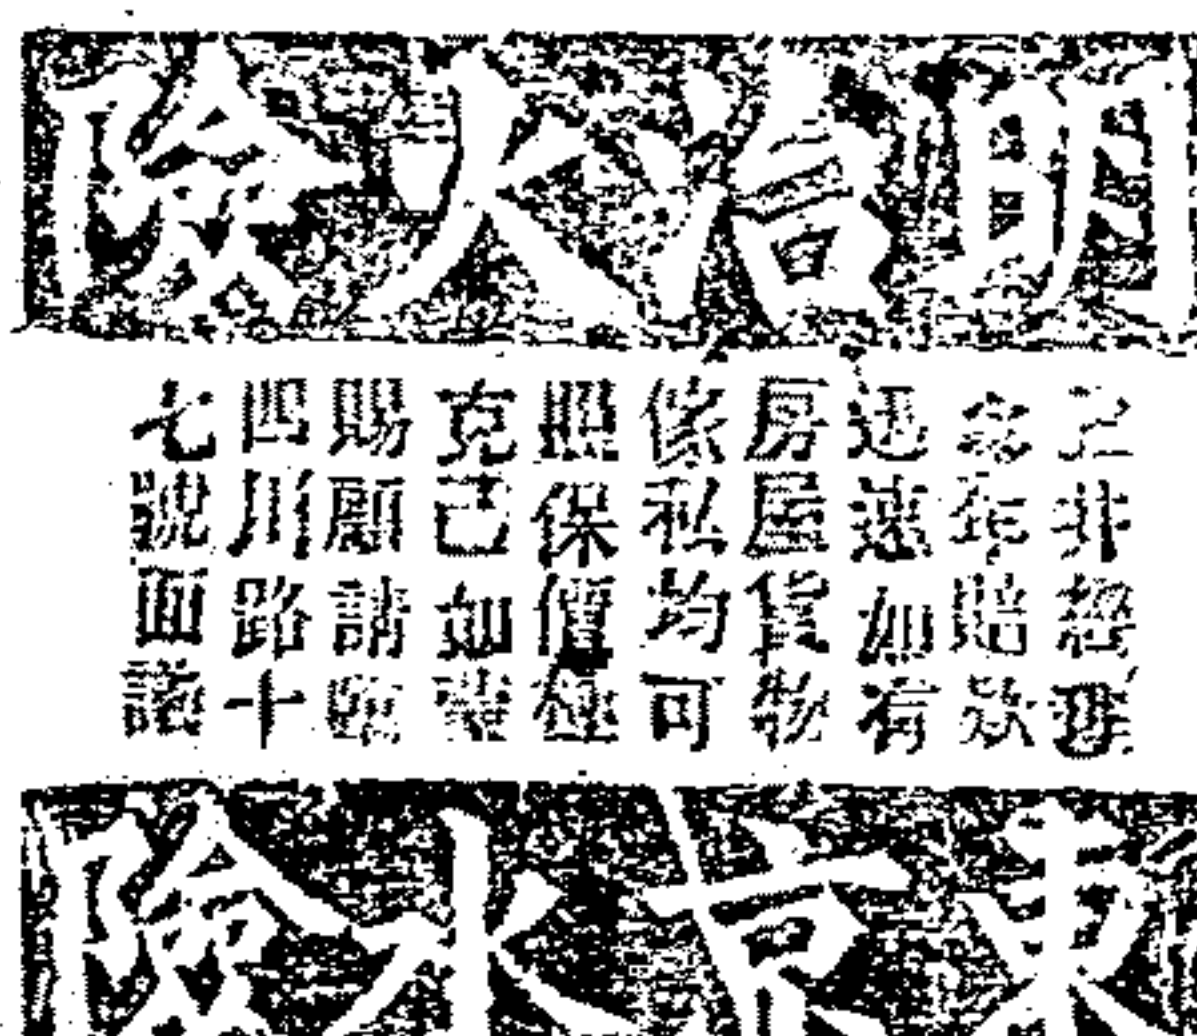 明治火險
非經理
多年賠款
迅速如有
房屋貨物
傢私均可
照保價極
克己如蒙
賜顧請臨
四川路十
七號面議
東京水險